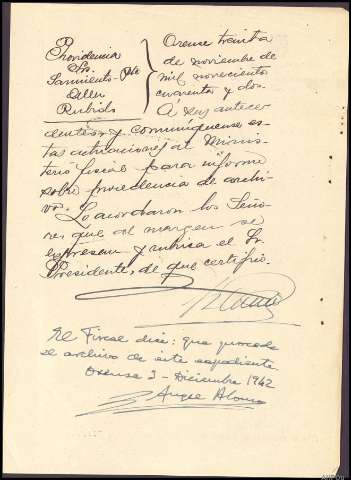 Providencia
Srs.
Sarmiento - Pte
Aller
Rubido
Orense treinta
de noviembre de
mil novecientos
cuarenta y dos.
A sus antece
dentes y comuníquense es
tas actuaciones al Minis
terio fiscal para informe
sobre procedencia de archi
vo.
Lo acordaron los Seño
res que al margen se
expresan y rubrica el Sr.
Presidente, de que certifico.
El Fiscal dice: que procede
el archivo de este expediente
Orense 2 - Diciembre 1942
Angel Alonso